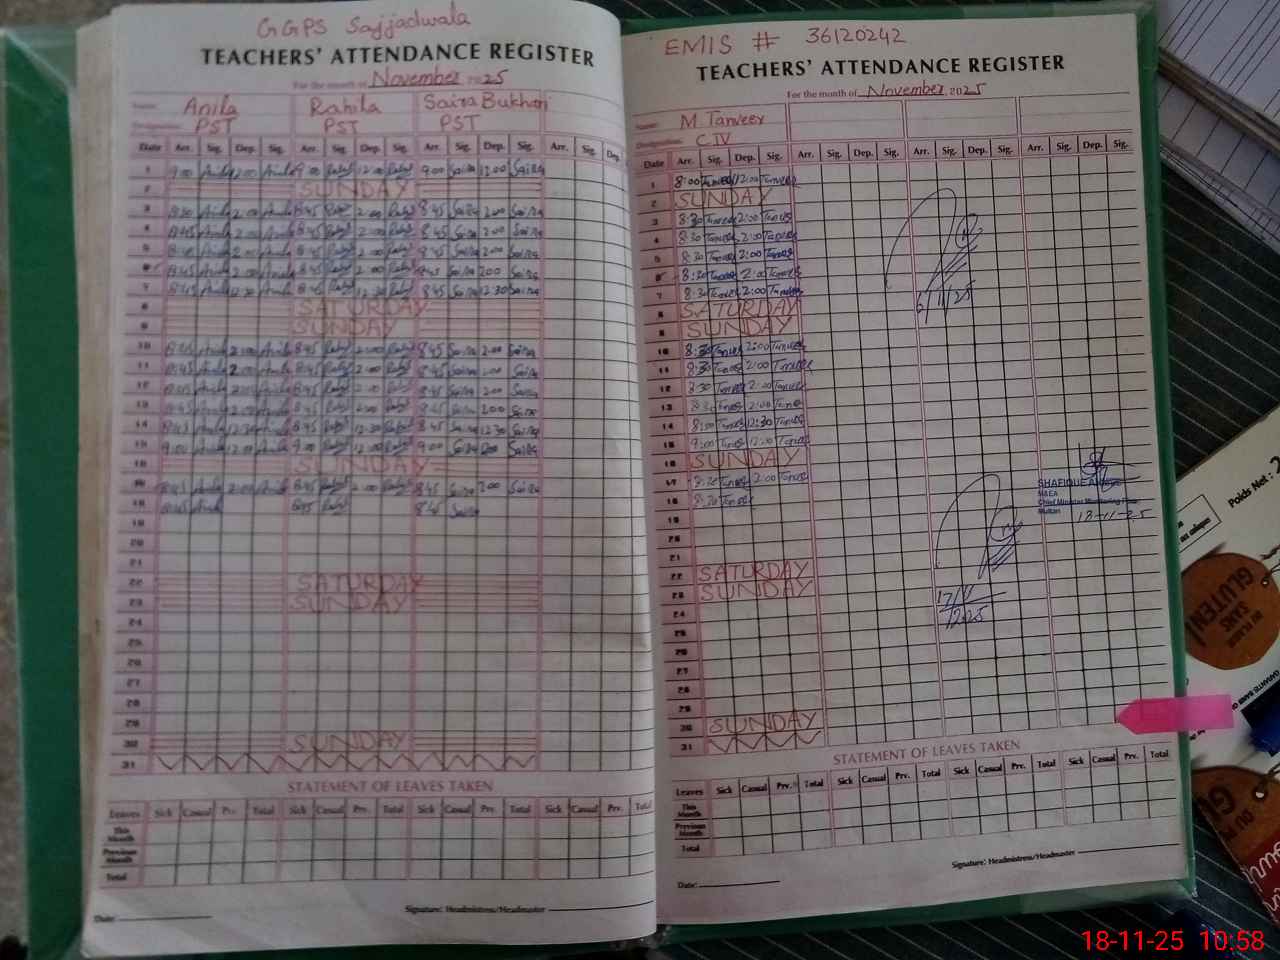 GGPS Sajjadwala
TEACHERS' ATTENDANCE REGISTER
For the month of November 2025
Name: Anila Rahila Saira Bukhari
Designation: PST PST PST
Date Arr. Sig. Dep. Sig. Arr. Sig. Dep. Sig. Arr. Sig. Dep. Sig. Arr. Sig. Dep.
1 9:00 Anila 12:00 Anila 9:00 12:00 9:00 Saira 12:00 Saira
2 SUNDAY
3 Anila 2:00 Anila 8:45 2:00 8:45 Saira 2:00 Saira
4 8:45 Anila 2:00 Anila 8:45 2:00 8:45 Saira 2:00 Saira
5 8:45 Anila 2:00 Anila 8:45 2:00 8:45 Saira 2:00 Saira
6 8:45 Anila 2:00 Anila 8:45 2:00 8:45 Saira 2:00 Saira
7 8:45 Anila 12:30 Anila 8:45 12:30 8:45 Saira 12:30 Saira
8 SATURDAY
9 SUNDAY
10 8:45 Anila 2:00 Anila 8:45 2:00 8:45 Saira 2:00 Saira
11 8:45 Anila 2:00 Anila 8:45 2:00 8:45 Saira 2:00 Saira
12 8:45 Anila 2:00 Anila 8:45 2:00 8:45 Saira 2:00 Saira
13 8:45 Anila 2:00 Anila 8:45 2:00 8:45 Saira 2:00 Saira
14 8:45 Anila 12:30 Anila 8:45 12:30 8:45 Saira 12:30 Saira
15 9:00 Anila 12:00 Anila 9:00 12:00 9:00 Saira Saira
16 SUNDAY
17 8:45 Anila 2:00 Anila 8:45 2:00 8:45 Saira 2:00 Saira
18 8:45 Anila 8:45 8:45 Saira
19
20
21
22 SATURDAY
23 SUNDAY
24
25
26
27
28
29
30 SUNDAY
31
STATEMENT OF LEAVES TAKEN
Leaves Sick Casual Prv. Total Sick Casual Prv. Total Sick Casual Prv. Total Sick Casual Prv. Total
This Month
Previous Month
Total
Date: Signature: Headmistress/Headmaster
EMIS # 36120242
TEACHERS' ATTENDANCE REGISTER
For the month of November 2025
Name: M Tanveer
Designation: C.IV
Date Arr. Sig. Dep. Sig. Arr. Sig. Dep. Sig. Arr. Sig. Dep. Sig. Arr. Sig. Dep. Sig.
1 8:00 Tanveer 12:00 Tanveer
2 SUNDAY
3 8:30 Tanveer 2:00 Tanveer
4 8:30 Tanveer 2:00 Tanveer
5 8:30 Tanveer 2:00 Tanveer
6 8:30 Tanveer 2:00 Tanveer
7 8:30 Tanveer 2:00 Tanveer
6/11/25
8 SATURDAY
9 SUNDAY
10 8:30 Tanveer 2:00 Tanveer
11 8:30 Tanveer 2:00 Tanveer
12 8:30 Tanveer 2:00 Tanveer
13 8:30 Tanveer 2:00 Tanveer
14 8:00 Tanveer 12:30 Tanveer
15 9:00 Tanveer 12:00 Tanveer
16 SUNDAY
17 8:30 Tanveer 2:00 Tanveer
18 8:30 Tanveer
SHAFIQUE
MAEA
Chief Minister Monitoring Force
Multan 18-11-25
19
20
21
22 SATURDAY
23 SUNDAY
17/11/2025
24
25
26
27
28
29
30 SUNDAY
31
STATEMENT OF LEAVES TAKEN
Leaves Sick Casual Prv. Total Sick Casual Prv. Total Sick Casual Prv. Total Sick Casual Prv. Total
This Month
Previous Month
Total
Signature: Headmistress/Headmaster
Date:
Poids Net :
SANS
GLUTEN
18-11-25 10:58